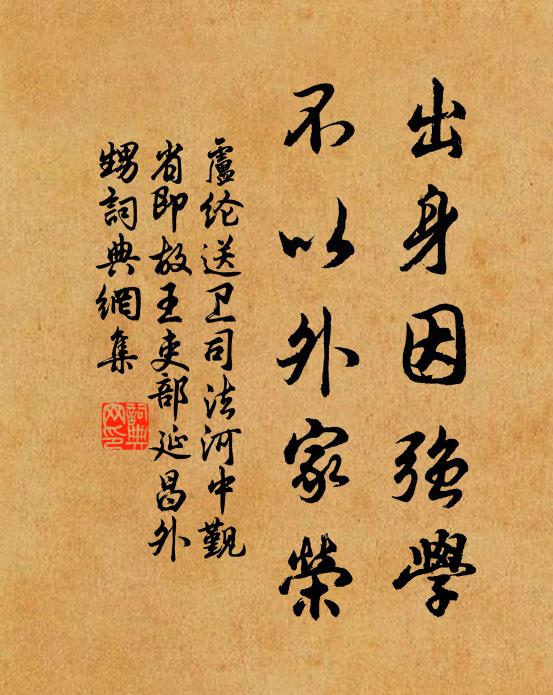 出身因強學
不以外家榮
盧纶送卫司法河中觐
省即故王吏部延昌外
甥詞典網集
詞典
网印